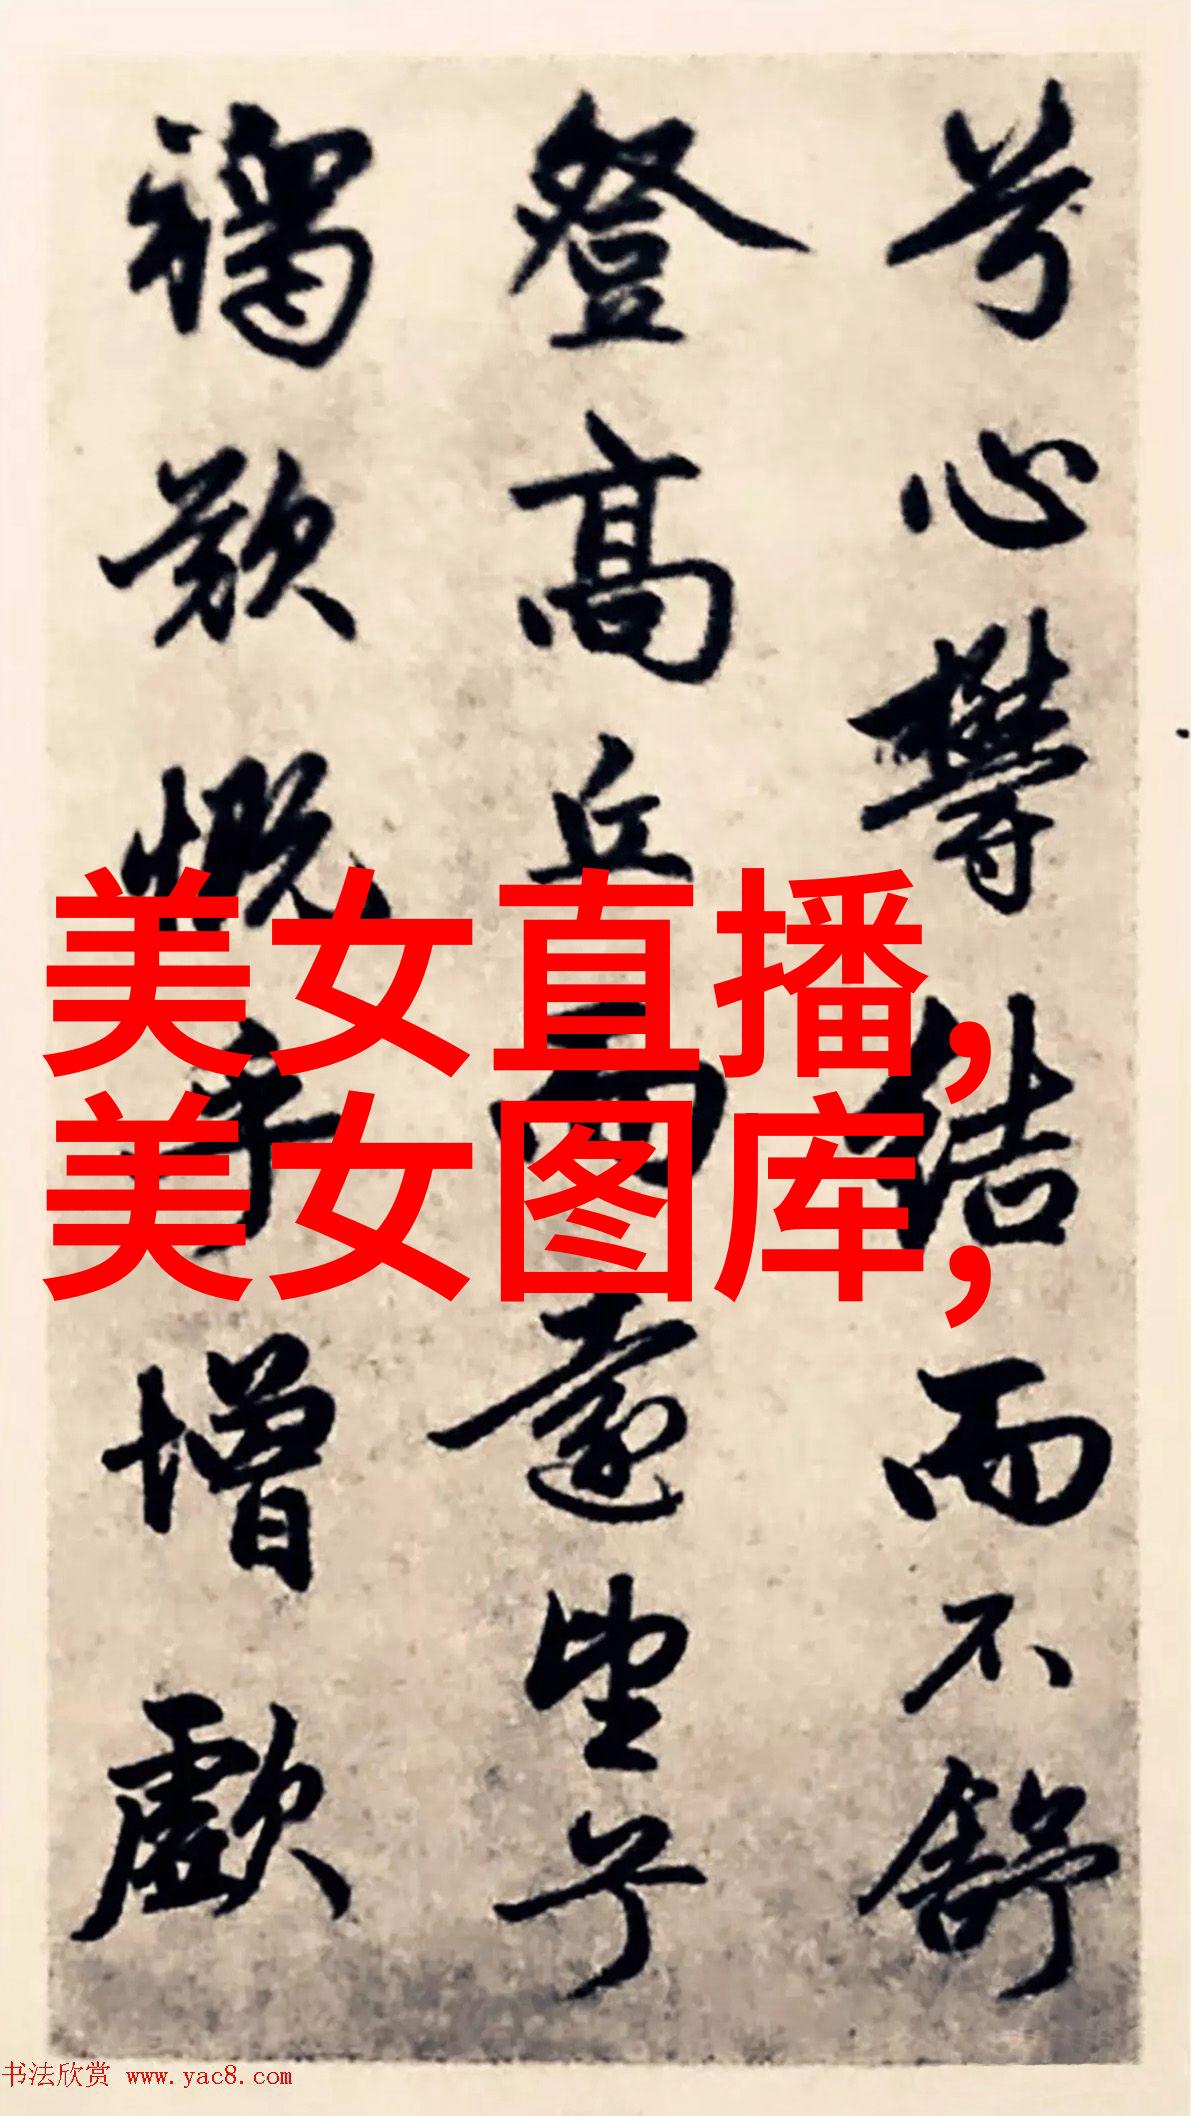 兮心鬱结而不舒
登高丘而遠望兮
褐欷慨乎增歔
美女直播,
美女图库,
书法欣赏 www.yac8.com